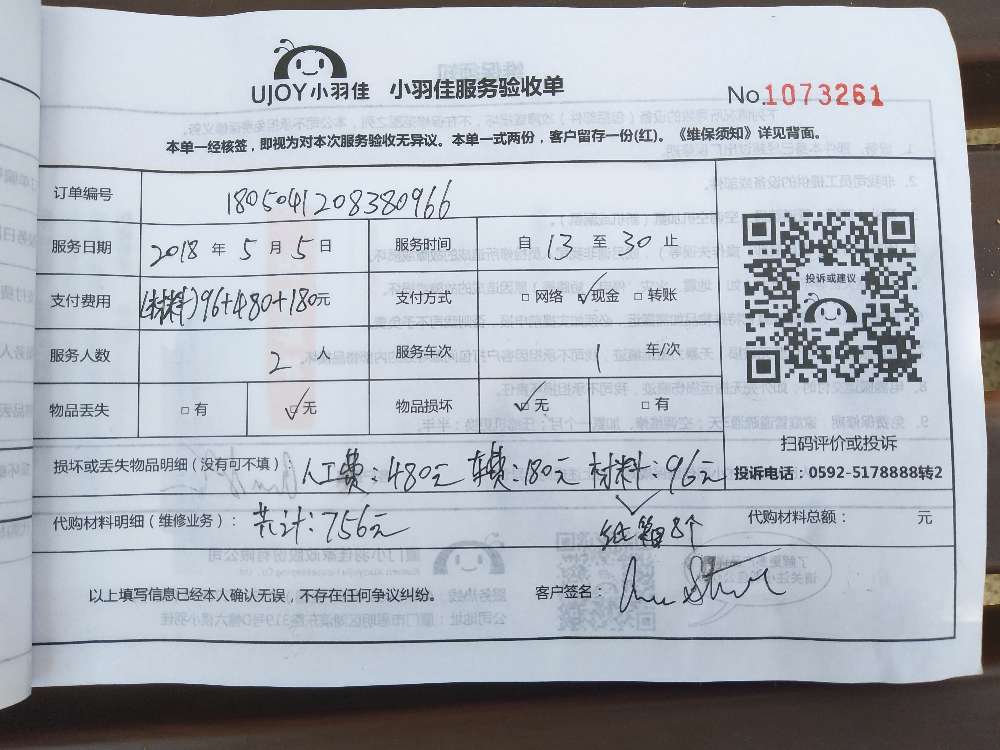 UJOY小羽佳 小羽佳服务验收单
No.1073261
本单一经核签，即视为对本次服务验收无异议。本单一式两份，客户留存一份(红)。《维保须知》详见背面。
订单编号 1805041208380966
服务日期 2018 年 5 月 5 日 服务时间 自 13 至 30 止
支付费用 (材料)96+480+180元 支付方式 □网络 ☑现金 □转账
服务人数 2 人 服务车次 1 车/次
物品丢失 □有 ☑无 物品损坏 ☑无 □有
投诉或建议
扫码评价或投诉
投诉电话：0592-5178888转2
损坏或丢失物品明细（没有可不填）：人工费：480元 车费：180元 材料：96元
代购材料明细（维修业务）：共计：756元 纸箱8个 代购材料总额： 元
以上填写信息已经本人确认无误，不存在任何争议纠纷。 客户签名：